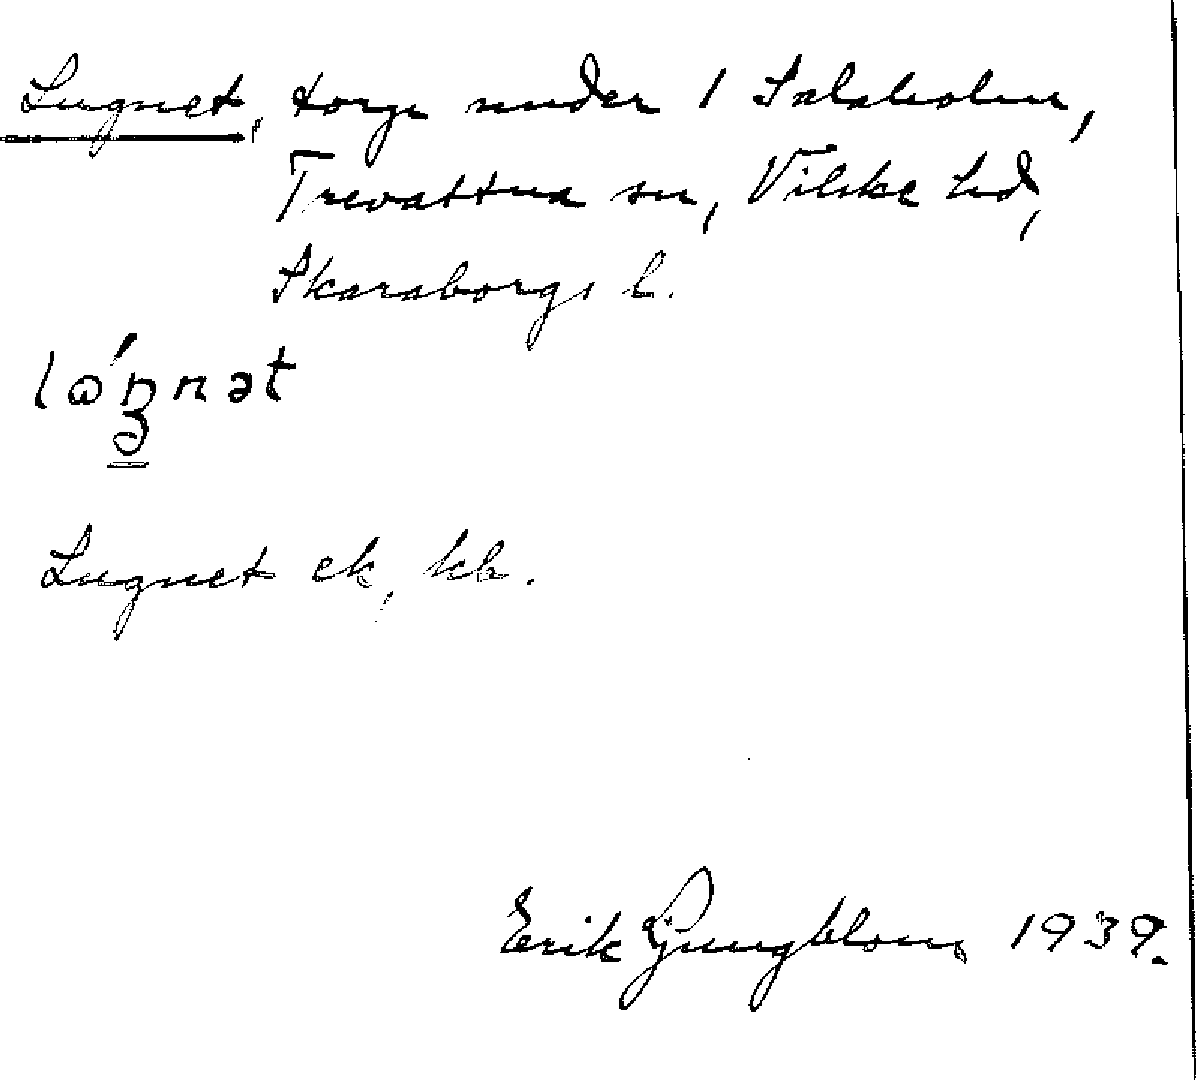 Lugnet, torp under 1 Salaholm,
Trevattna sn, Vilske hd,
Skaraborgs l.
Lugnet ek, kb.
Erik Ljungblom, 1939.